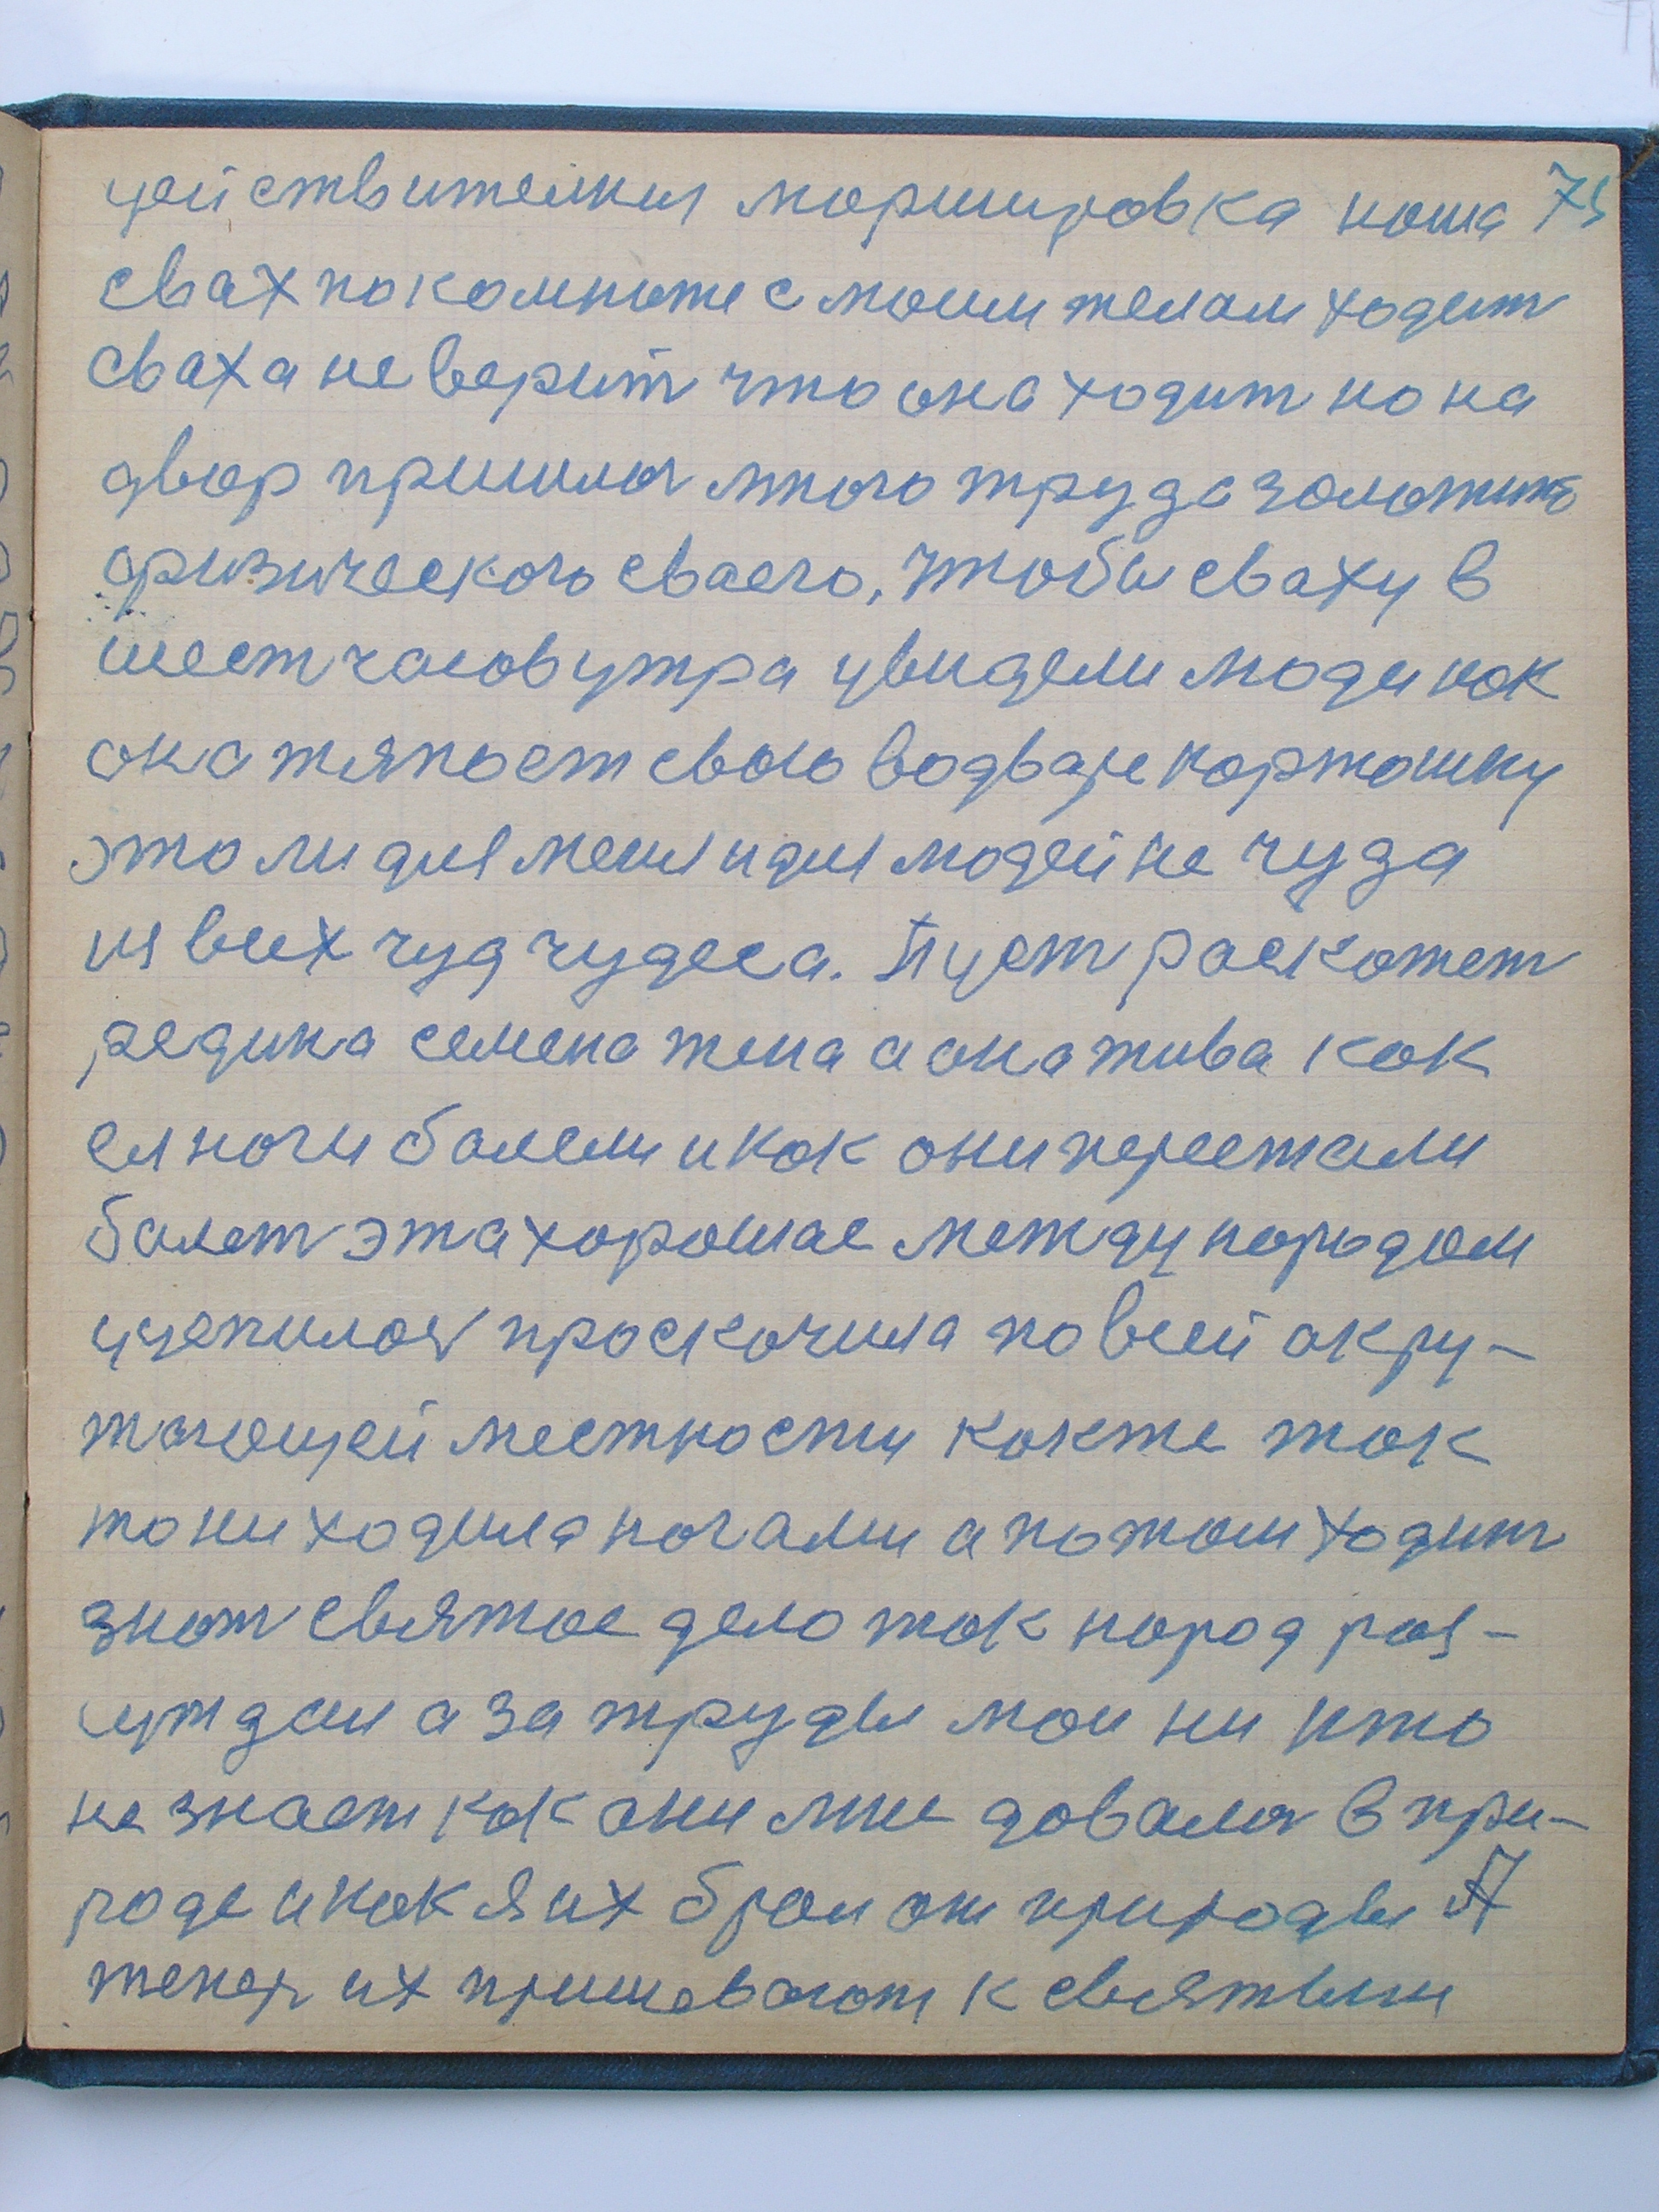 действителния моршировка ноша 75
свах по комноте с моим телам ходит
сваха не верит что она ходит но на
двор пришлос много труда золожить
физического сваего, чтобы сваху в
шест часов утра увидели люди как
она тяпает свою во дваре картошку
это ли для меня и для людей не чуда
из всех чуд чудеса. Пуст роскожет
редика семена жена а она жива как
ея ноги балели и как они перестали
балет эта хорошае между народом
уцепилос проскочила по всей окру-
жающей местности как же так
то ни ходила ногами а потом ходит
знат святое дело так народ роз-
уждал а за труды мои ни кто
не знает как они мне довалис в при-
роде и как я их брал от природы А
тепер их пришевают к святым